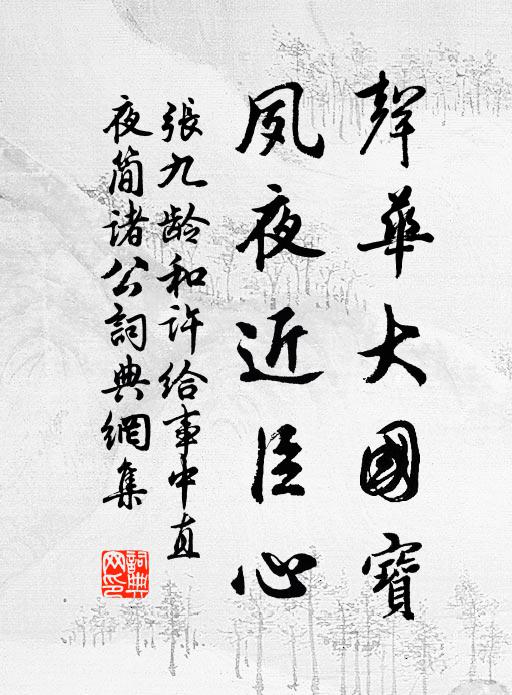 聲華大國寶
夙夜近臣心
張九龄和許給事中直
夜簡诸公詞典網集
詞典
网印